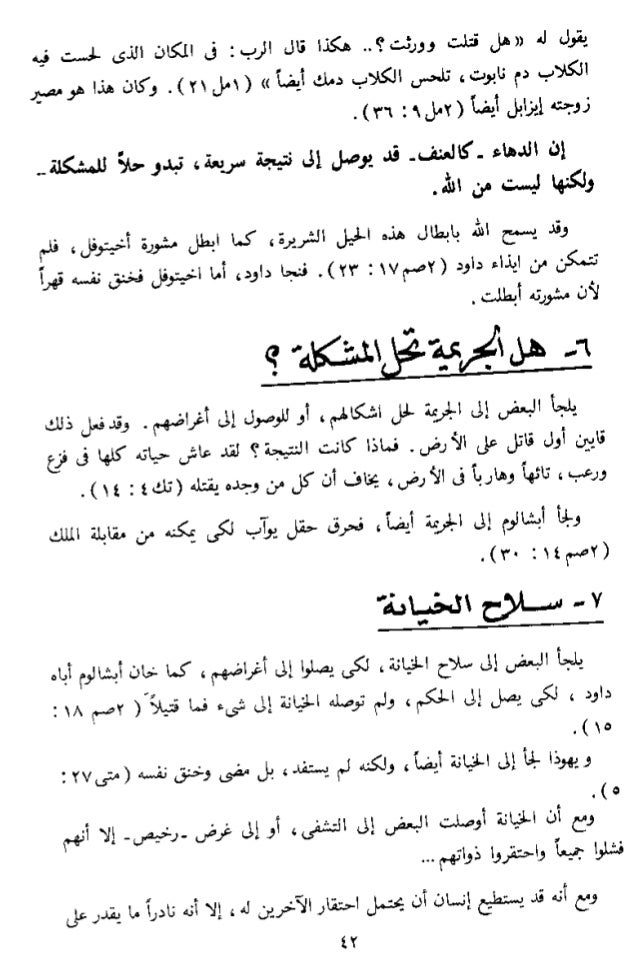 يقول له «هل قتلت وورثت؟.. هكذا قال الرب: فى المكان الذى لحست فيه
الكلاب دم نابوت، تلحس الكلاب دمك أيضاً» (١مل٢١). وكان هذا هو مصير
زوجته إيزابل أيضاً (٢مل٩: ٣٦).
إن الدهاء ـ كالعنف ـ قد يوصل إلى نتيجة سريعة، تبدو حلاً للمشكلة ــ
ولكنها ليست من الله.
وقد يسمح الله بابطال هذه الحيل الشريرة، كما ابطل مشورة أخيتوفل، فلم
تتمكن من ايذاء داود (٢صم١٧: ٢٣). فنجا داود، أما اخيتوفل فخنق نفسه قهراً
لأن مشورته أبطلت.
٦ـ هل الجريمة تحل المشكلة ؟
يلجأ البعض إلى الجريمة لحل اشكالهم، أو للوصول إلى أغراضهم. وقد فعل ذلك
قايين أول قاتل على الأرض. فماذا كانت النتيجة؟ لقد عاش حياته كلها فى فزع
ورعب، تائهاً وهارباً فى الأرض، يخاف أن كل من وجده يقتله (تك٤: ١٤).
ولجأ أبشالوم إلى الجريمة أيضاً، فحرق حقل يوآب لكى يمكنه من مقابلة الملك
(٢صم١٤: ٣٠).
٧ـ سلاح الخيانة
يلجأ البعض إلى سلاح الخيانة، لكى يصلوا إلى أغراضهم، كما خان أبشالوم أباه
داود، لكى يصل إلى الحكم، ولم توصله الخيانة إلى شىء فما قتيلاً (٢صم ١٨:
١٥).
ويهوذا لجأ إلى الخيانة أيضاً، ولكنه لم يستفد، بل مضى وخنق نفسه (متى٢٧:
٥).
ومع أن الخيانة أوصلت البعض إلى التشفى، أو إلى غرض ـ رخيص ـ إلا أنهم
فشلوا جميعاً واحتقروا ذواتهم...
ومع أنه قد يستطيع إنسان أن يحتمل احتقار الآخرين له، إلا أنه نادراً ما يقدر على
٤٢